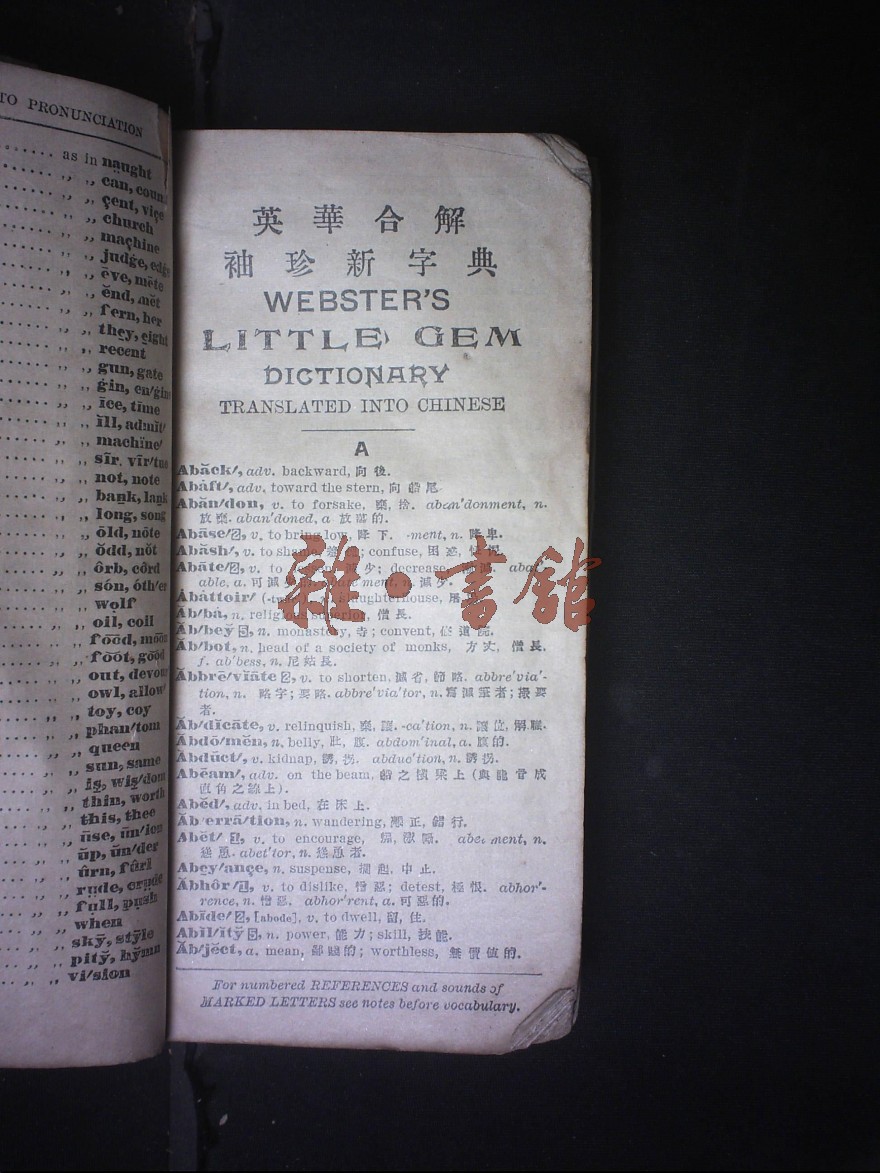 TO PRONUNCIATION
as in naught
„ „ can, coun
„ „ çent, viçe
„ „ church
„ „ maçhine
„ „ judge, edge
„ „ ēve, mēte
„ „ ĕnd, mĕt
„ „ fern, her
„ „ they, eight
„ „ recent
„ „ gun, gate
„ „ ġin, en/ġine
„ „ īce, tīme
„ „ ĭll, admĭt/
„ „ machïne/
„ „ sīr, vīr/tue
„ „ not, note
„ „ bank, lank
„ „ long, song
„ „ ōld, nōte
„ „ ŏdd, nŏt
„ „ ôrb, côrd
„ „ són, óth/er
„ „ wolf
„ „ oil, coil
„ „ fōōd, mōōn
„ „ fŏŏt, gŏŏd
„ „ out, devou
„ „ owl, allow/
„ „ toy, coy
„ „ phan/tom
„ „ queen
„ „ sun, same
„ „ is, wis/dom
„ „ thin, worth
„ „ this, thee
„ „ ūse, ūn/ion
„ „ ŭp, ŭn/der
„ „ ûrn, fûrl
„ „ rude, crude
„ „ full, push
„ „ when
„ „ skȳ, stȳle
„ „ pitў, hўmn
„ „ vi/sion
英華合解
袖珍新字典
WEBSTER'S
LITTLE GEM
DICTIONARY
TRANSLATED INTO CHINESE
A
Abăck/, adv. backward, 向後.
Abȧft/, adv. toward the stern, 向船尾.
Abăn/don, v. to forsake, 棄, 捨. aban'donment, n.
放棄. aban'doned, a 放蕩的.
Abāse/2, v. to bring low, 降下. -ment, n. 降卑.
Abăsh/, v. to shame, ; confuse, 困惑,
Abāte/2, v. to 減少; decrease, abat'
able, a. 可減少 ment, n. 減少.
Abattoir/ slaughterhouse, 屠
Ăb/bȧ, n. religious superior, 僧長.
Ăb/beў 5, n. monastery, 寺; convent, 修道院.
Ăb/bot, n. head of a society of monks, 方丈, 僧長.
f. ab'bess, n. 尼姑長.
Ăbbrē/vĭāte 2, v. to shorten, 減省, 節略. abbre'via'-
tion, n. 略字; 要略. abbre'via'tor, n. 寫減筆者; 撮要
者.
Ăb/dĭcāte, v. relinquish, 棄, 讓. -ca'tion, n. 讓位, 解職.
Abdō/mĕn, n. belly, 肚, 腹. abdom'inal, a. 腹的.
Ăbdŭct/, v. kidnap, 誘, 拐. abduc'tion, n. 誘拐.
Abēam/, adv. on the beam, 船之橫梁上 (與龍骨成
直角之線上).
Abĕd/, adv. in bed, 在床上.
Ăb erră/tion, n. wandering, 離正, 錯行.
Abĕt/ 1, v. to encourage, abet'ment, n.
慫恿. abet'tor, n. 慫恿者.
Abey/ançe, n. suspense, 擱起, 中止.
Ăbhôr/1, v. to dislike, 憎惡; detest, 極恨. abhor'-
rence, n. 憎惡. abhor'rent, a. 可惡的.
Abīde/2, [abode], v. to dwell, 留, 住.
Abĭl/ĭtў 5, n. power, 能力; skill, 技能.
Ăb/jĕct, a. mean, 鄙賤的; worthless, 無價值的.
For numbered REFERENCES and sounds of
MARKED LETTERS see notes before vocabulary.
雜·書館